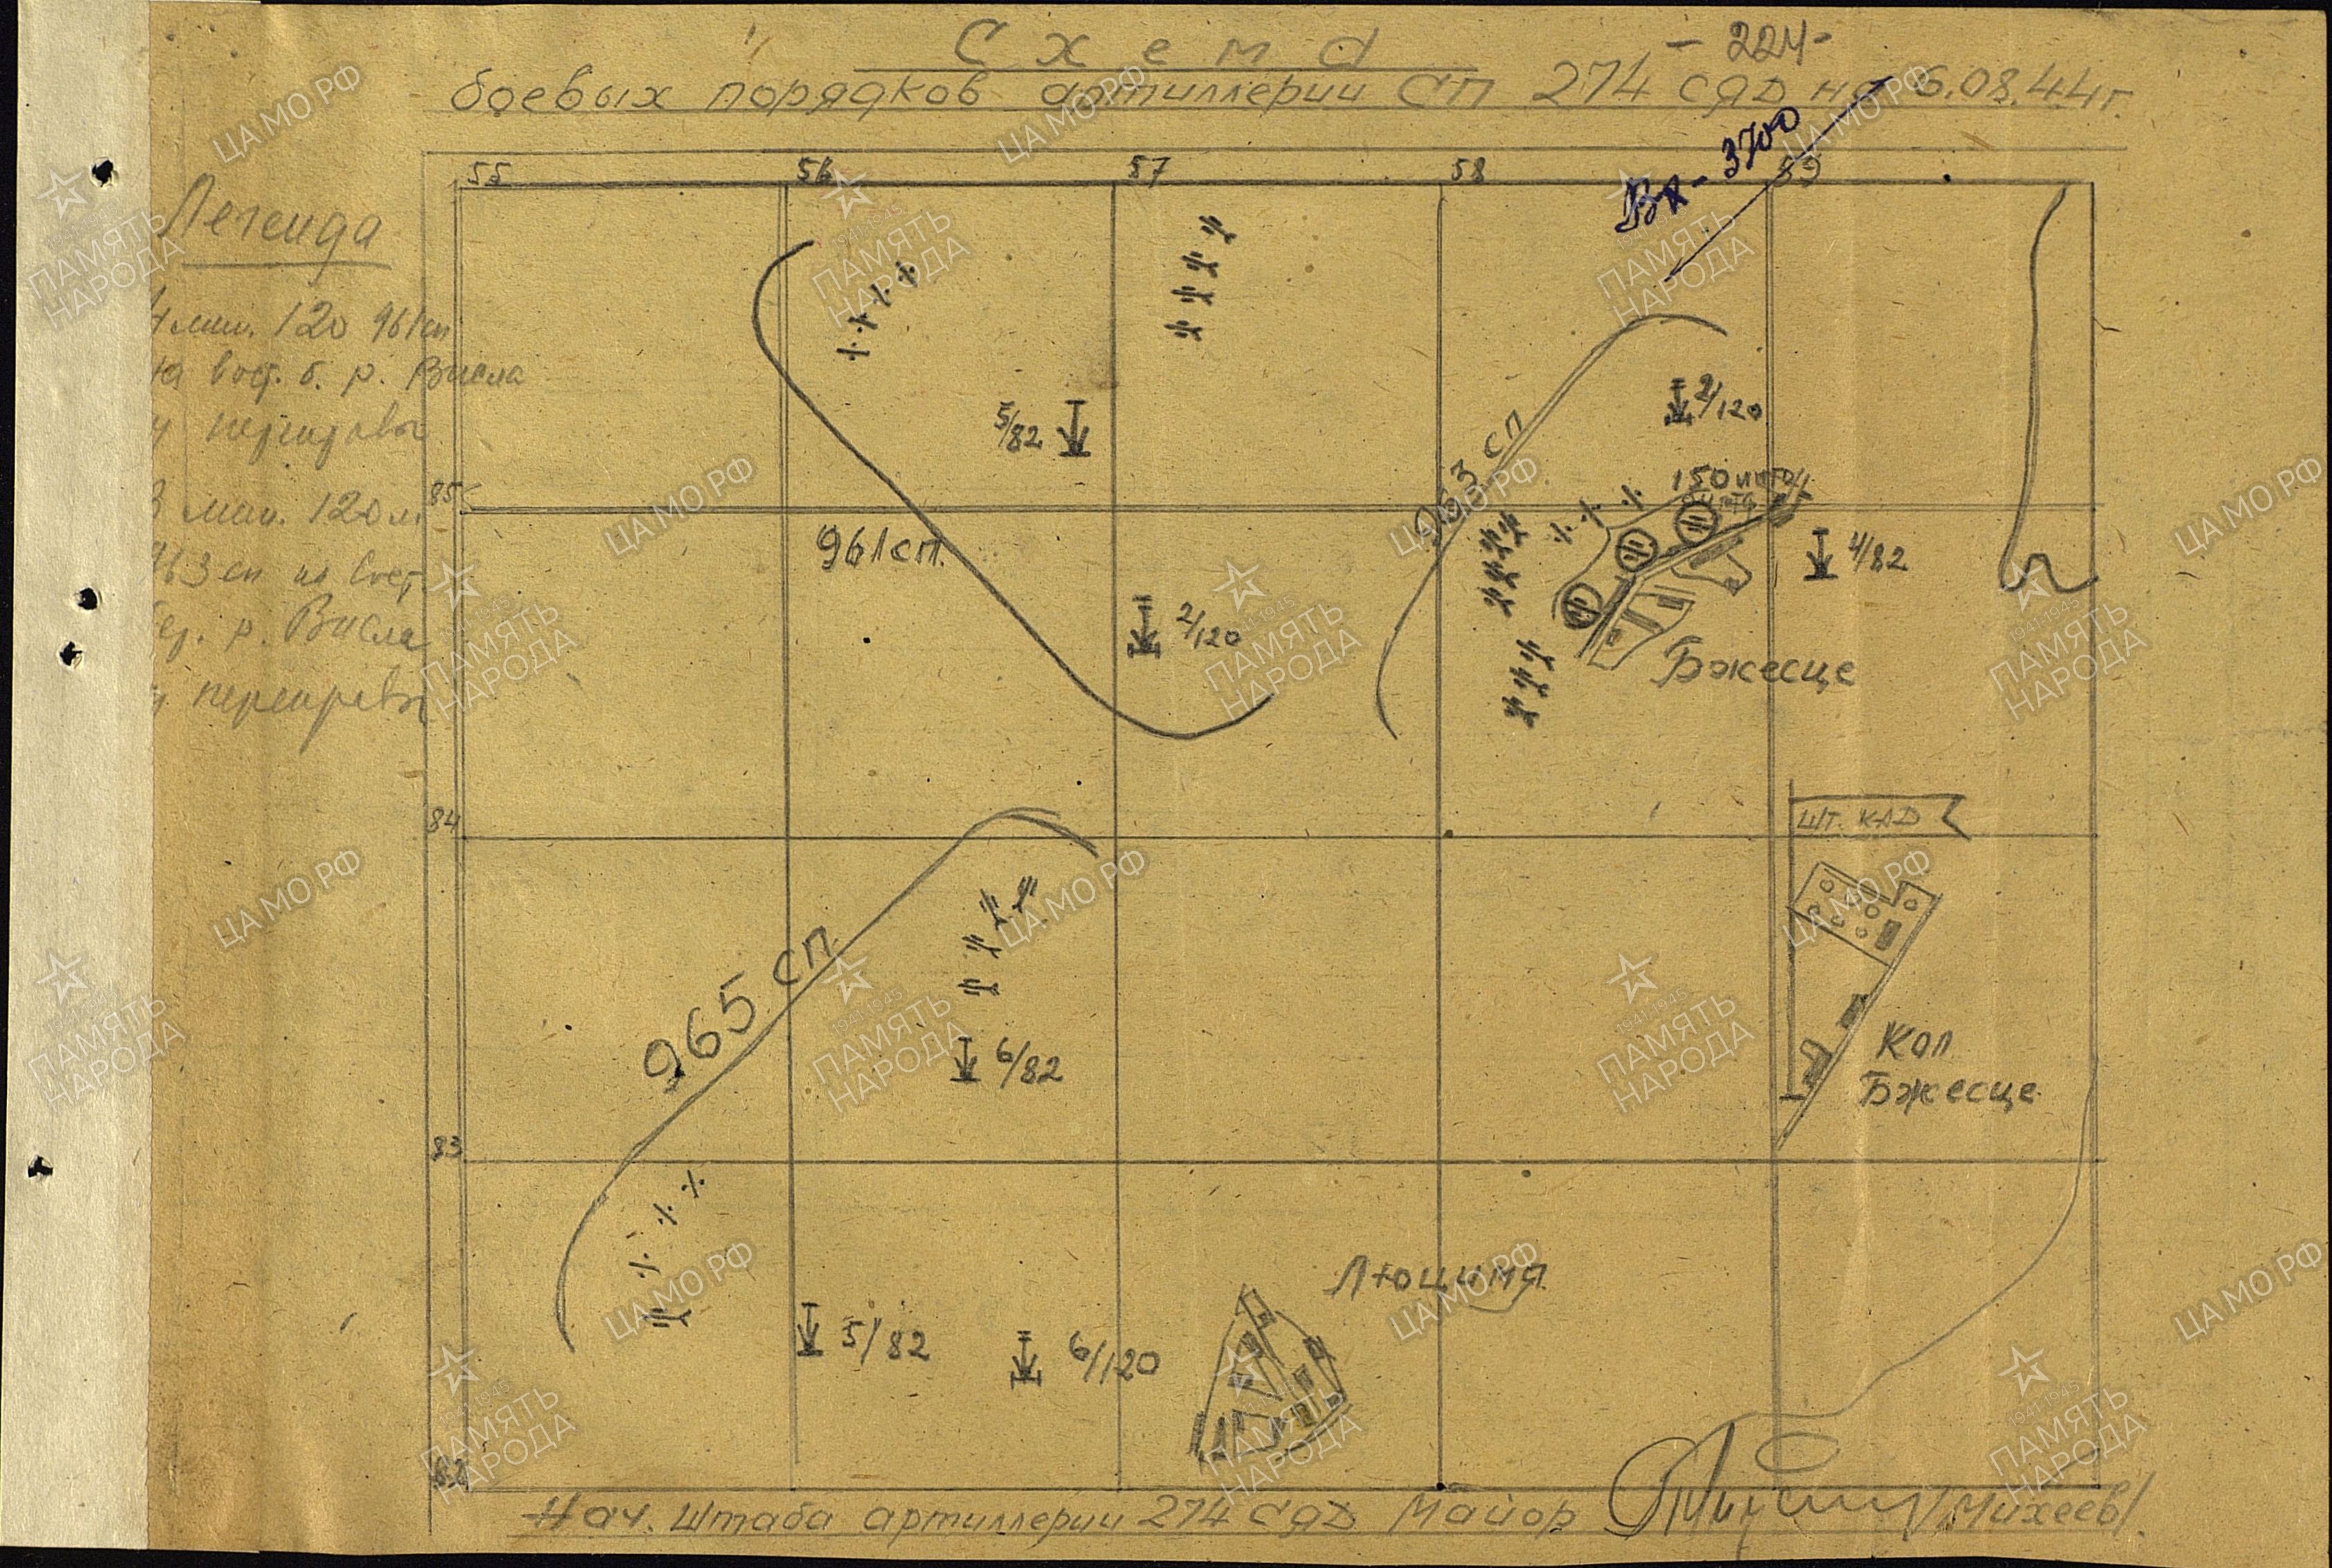 Схема
- 224 -
боевых порядков артиллерии СП 274 СЯД на 6.08.44г.
Вх - 3700
55 56 57 58 59
Легенда
4 мин. 120 961 сп
на вост. б. р. Висла
у переправы
3 мин. 120 м
963 сп на вост.
бер. р. Висла
у переправы
5/82
963 сп
2/120
85
150 иптд
961 сп.
4/82
2/120
Бжесце
84
шт. КАД
965 сп
6/82
Кол
Бжесце
83
Люциня
5/82
6/120
82
Нач. штаба артиллерии 274 СЯД Майор /Михеев/.
ЦАМО РФ
ПАМЯТЬ НАРОДА
1941-1945